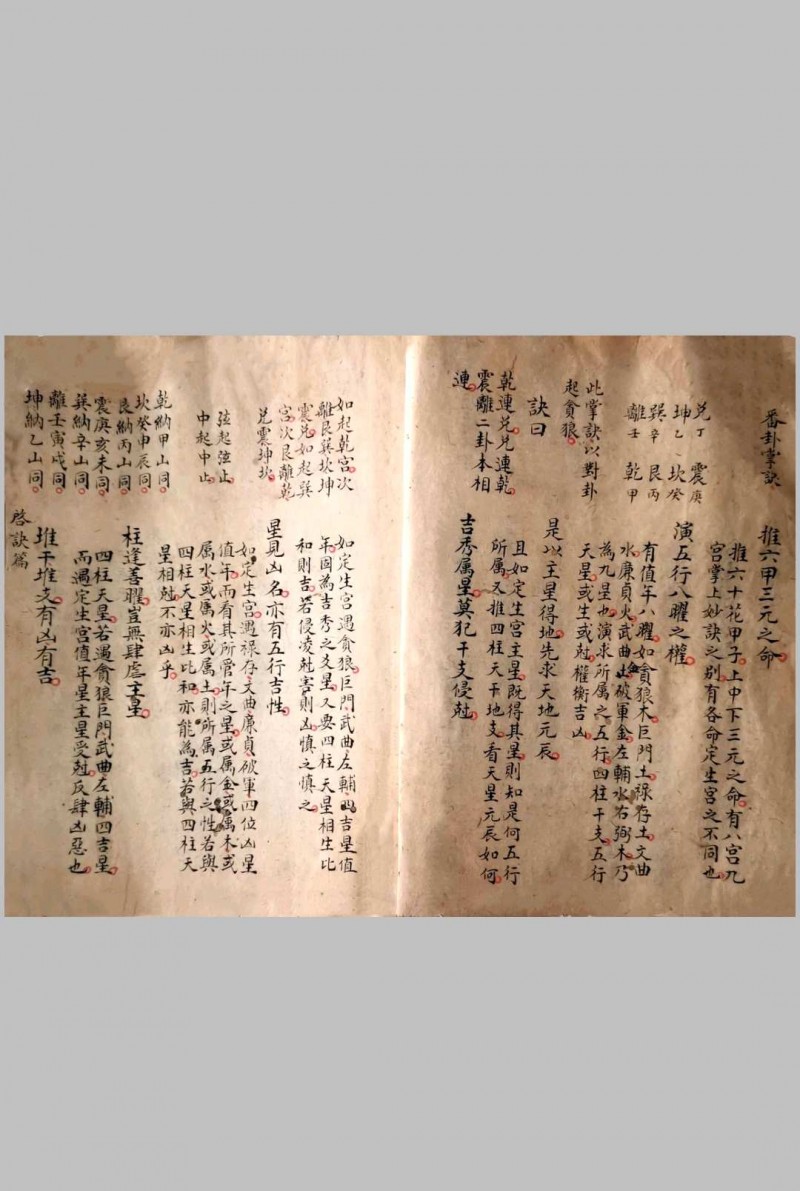 番卦掌訣
兌丁 震庚
坤乙 坎癸
巽辛 艮丙
離壬 乾甲
此掌訣以對卦
起貪狼
訣曰
乾連兌兌連乾
震離二卦本相
連
推六甲三元之命
推六十花甲子上中下三元之命有八宮九
宮掌上妙訣之别有各命定生宮之不同也
演五行八曜之權
有值年八曜如貪狼木巨門土祿存土文曲
水廉貞火武曲金破軍金左輔水右弼木乃
為九星也演求所属之五行四柱干支五行
天星或生或尅權衡吉凶
是以主星得地先求天地元辰
且如定生宮主星既得其星則知是何五行
所属又推四柱天干地支看天星元辰如何
吉秀属星莫犯干支侵尅
如起乾宮次
離艮巽坎坤
震兌如起巽
宮次艮離乾
兌震坤坎
弦起弦止
中起中止
乾納甲山同
坎癸申辰同
艮納丙山同
震庚亥未同
巽納辛山同
離壬寅戌同
坤納乙山同
如定生宮遇貪狼巨門武曲左輔四吉星值
年固為吉秀之爻星又要四柱天星相生比
和則吉若侵凌尅害則凶慎之慎之
星見凶名亦有五行吉性
如定生宮遇祿存文曲廉貞破軍四位凶星
值年而看其所管年之星或属金或属木或
属水或属火或属土則所属五行之性若與
四柱天星相生比和亦能為吉若與四柱天
星相尅不亦凶乎
柱逢善曜豈無肆虐主星
四柱天星若遇貪狼巨門武曲左輔四吉星
而遇定生宮值年星主星受尅反肆凶惡也
堆干堆支有凶有吉
啓訣篇